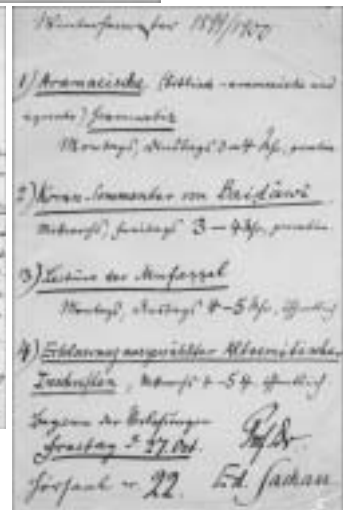 Wintersemester 1899/1900
1) Aramaeische (biblisch-aramaeische und
) Grammatik
Montags, Dienstags 3–4 Uhr, privatim
2) Koran-Commentar von Baiḍâwî
Mittwochs, Freitags 3–4 Uhr, privatim
3) Lectüre des Mufaṣṣal
Montags, Dienstags 4–5 Uhr, öffentlich
4) Erklärung ausgewählter Altsemitischer
Inschriften, Mittwochs 4–5 Uhr öffentlich
Beginn der Vorlesungen
Freitag d. 27. Oct.
Hörsaal nr. 22.
Prof. Dr.
Ed. Sachau